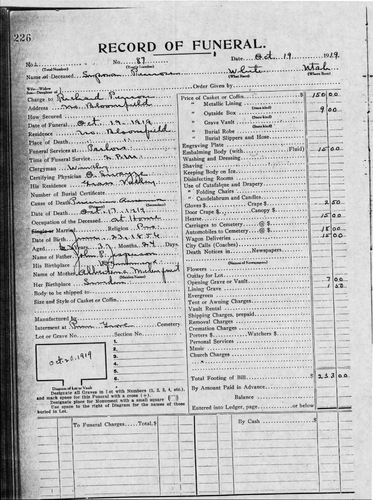 226
RECORD OF FUNERAL.
No. 87 Date Oct 19 1919
(Total Number) (Yearly Number)
Name of Deceased White Utah
(What Race) (Where Born)
Order Given by
Charge to Richard
Address No. Bloomfield
How Secured
Date of Funeral Oct. 19. 1919
Residence No. Bloomfield
Place of Death
Funeral Services at Parlors
Time of Funeral Service
Clergyman
Certifying Physician
His Residence Grass Valley
Number of Burial Certificate
Cause of Death Pernicious
Date of Death Oct. 17, 1919
Occupation of the Deceased at Home
Single or Married Religion
Date of Birth 1856
Aged Years Months 24 Days
Name of Father John P.
His Birthplace
Name of Mother
Her Birthplace Sweden
Body to be shipped to
Size and Style of Casket or Coffin
Manufactured by
Interment at Pine Grove Cemetery
Lot or Grave No. Section No.
1.
2.
3.
4.
5.
6.
7.
8.
Oct 20. 1919
Diagram of Lot or Vault
Designate all Graves in Lot with Numbers (1, 2, 3, 4, etc.), and mark space for this Funeral with a cross (x).
Designate place for Monument with a small square (□)
Use space to the right of Diagram for the names of those buried in Lot.
Price of Casket or Coffin $ 150 00
" Metallic Lining
" Outside Box 9 00
" Grave Vault
" Burial Robe
" Burial Slippers and Hose
Engraving Plate
Embalming Body (with Fluid) 15 00
Washing and Dressing
Shaving
Keeping Body on Ice
Disinfecting Rooms
Use of Catafalque and Drapery
" Folding Chairs
" Candelabrum and Candles
Gloves $ Crape $ 2 50
Door Crape $ Canopy $
Hearse 15 00
Carriages to Cemetery @ $
Automobiles to Cemetery @ $ 18 00
Wagon Deliveries 15 00
City Calls (Coaches)
Death Notices in Newspapers
Flowers
Outlay for Lot
Opening Grave or Vault 7 00
Lining Grave 1 50
Evergreen
Tent or Awning Charges
Vault Rental
Shipping Charges, prepaid
Removal Charges
Cremation Charges
Porters $ Watchers $
Personal Services
Music
Church Charges
Total Footing of Bill $ 233 00
By Amount Paid in Advance
Balance
Entered into Ledger, page or below
To Funeral Charges, Total $
By Cash $